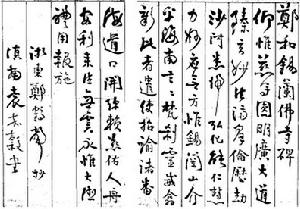 鄭和錫蘭佛寺碑
仰惟慈尊圓明廣大道
臻玄妙法濟羣倫歷劫
沙河悉歸弘化能仁慧
力妙應無方惟錫蘭山介
乎海南言言梵剎靈感翕
彰比者遣使詔諭諸番
海道之開深賴慈佑人舟
安利來往無虞永惟大德
禮用報施
鄭鶴聲抄
滇南袁嘉穀書